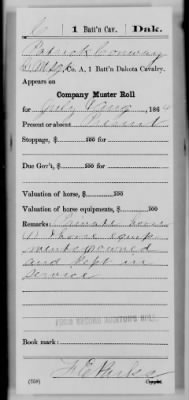 C 1 Batt'n Cav. Dak.
Patrick Conway
Co. A, 1 Batt'n Dakota Cavalry.
Appears on
Company Muster Roll
for July & Aug, 186
Present or absent Present
Stoppage, $ 100 for
Due Gov't, $ 100 for
Valuation of horse, $ 100
Valuation of horse equipments, $ 100
Remarks: Private horse
& horse equip
ments owned
and kept in
service
Book mark:
(358) Copyist.